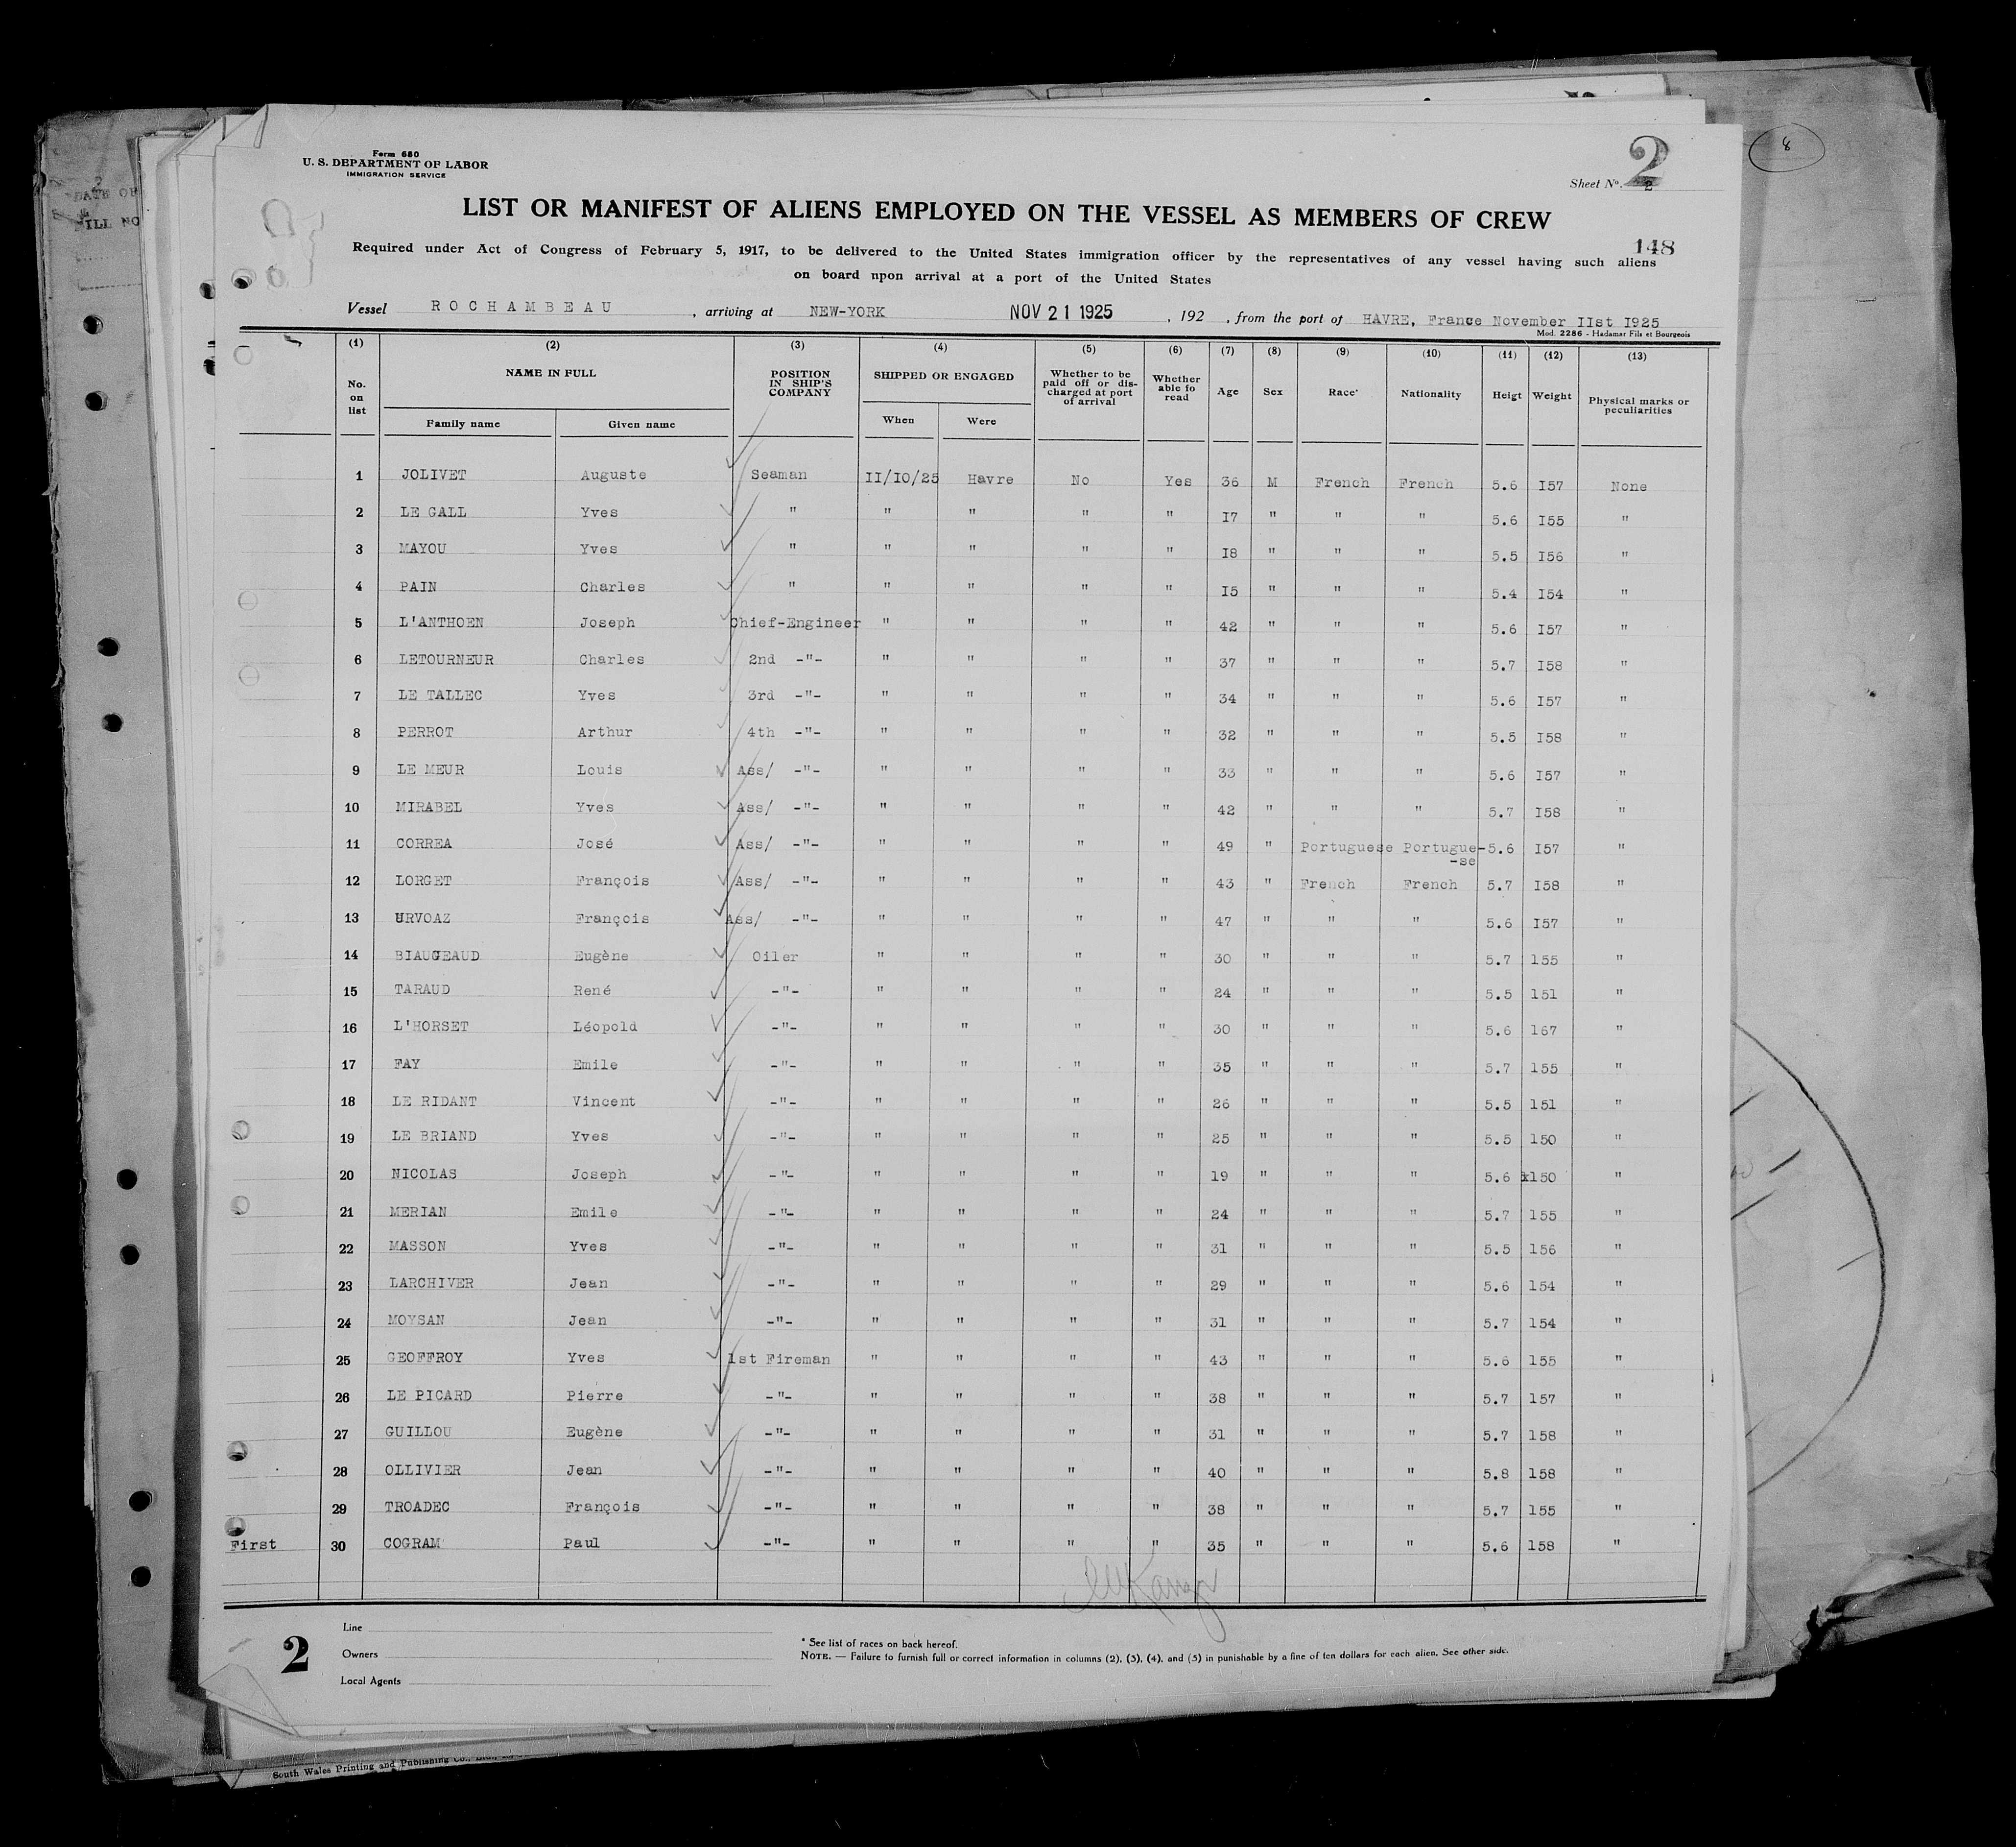 8
DATE OF
ILL NO
Form 680
U. S. DEPARTMENT OF LABOR
IMMIGRATION SERVICE
2
Sheet No. 2
LIST OR MANIFEST OF ALIENS EMPLOYED ON THE VESSEL AS MEMBERS OF CREW
148
Required under Act of Congress of February 5, 1917, to be delivered to the United States immigration officer by the representatives of any vessel having such aliens
on board upon arrival at a port of the United States
Vessel ROCHAMBEAU , arriving at NEW-YORK NOV 21 1925 , 192 , from the port of HAVRE, France November IIst I925
Mod. 2286 - Hadamar Fils et Bourgeois
(1) (2) (3) (4) (5) (6) (7) (8) (9) (10) (11) (12) (13)
No. on list NAME IN FULL POSITION IN SHIP'S COMPANY SHIPPED OR ENGAGED Whether to be paid off or dis- charged at port of arrival Whether able to read Age Sex Race* Nationality Heigt Weight Physical marks or peculiarities
Family name Given name When Were
1 JOLIVET Auguste Seaman II/IO/25 Havre No Yes 36 M French French 5.6 I57 None
2 LE GALL Yves " " " " " I7 " " " 5.6 I55 "
3 MAYOU Yves " " " " " I8 " " " 5.5 I56 "
4 PAIN Charles " " " " " I5 " " " 5.4 I54 "
5 L'ANTHOEN Joseph Chief-Engineer " " " " 42 " " " 5.6 I57 "
6 LETOURNEUR Charles 2nd -"- " " " " 37 " " " 5.7 I58 "
7 LE TALLEC Yves 3rd -"- " " " " 34 " " " 5.6 I57 "
8 PERROT Arthur 4th -"- " " " " 32 " " " 5.5 I58 "
9 LE MEUR Louis Ass/ -"- " " " " 33 " " " 5.6 I57 "
10 MIRABEL Yves Ass/ -"- " " " " 42 " " " 5.7 I58 "
11 CORREA José Ass/ -"- " " " " 49 " Portuguese Portugue- -se 5.6 I57 "
12 LORGET François Ass/ -"- " " " " 43 " French French 5.7 I58 "
13 URVOAZ François Ass/ -"- " " " " 47 " " " 5.6 I57 "
14 BIAUGEAUD Eugène Oiler " " " " 30 " " " 5.7 155 "
15 TARAUD René -"- " " " " 24 " " " 5.5 151 "
16 L'HORSET Léopold -"- " " " " 30 " " " 5.6 167 "
17 FAY Emile -"- " " " " 35 " " " 5.7 155 "
18 LE RIDANT Vincent -"- " " " " 26 " " " 5.5 151 "
19 LE BRIAND Yves -"- " " " " 25 " " " 5.5 150 "
20 NICOLAS Joseph -"- " " " " 19 " " " 5.6 150 "
21 MERIAN Emile -"- " " " " 24 " " " 5.7 155 "
22 MASSON Yves -"- " " " " 31 " " " 5.5 156 "
23 LARCHIVER Jean -"- " " " " 29 " " " 5.6 154 "
24 MOYSAN Jean -"- " " " " 31 " " " 5.7 154 "
25 GEOFFROY Yves 1st Fireman " " " " 43 " " " 5.6 155 "
26 LE PICARD Pierre -"- " " " " 38 " " " 5.7 157 "
27 GUILLOU Eugène -"- " " " " 31 " " " 5.7 158 "
28 OLLIVIER Jean -"- " " " " 40 " " " 5.8 158 "
29 TROADEC François -"- " " " " 38 " " " 5.7 155 "
First 30 COGRAM Paul -"- " " " " 35 " " " 5.6 158 "
2
Line
Owners
Local Agents
* See list of races on back hereof.
NOTE. — Failure to furnish full or correct information in columns (2), (3), (4), and (5) in punishable by a fine of ten dollars for each alien. See other side.
South Wales Printing and Publishing Co.,